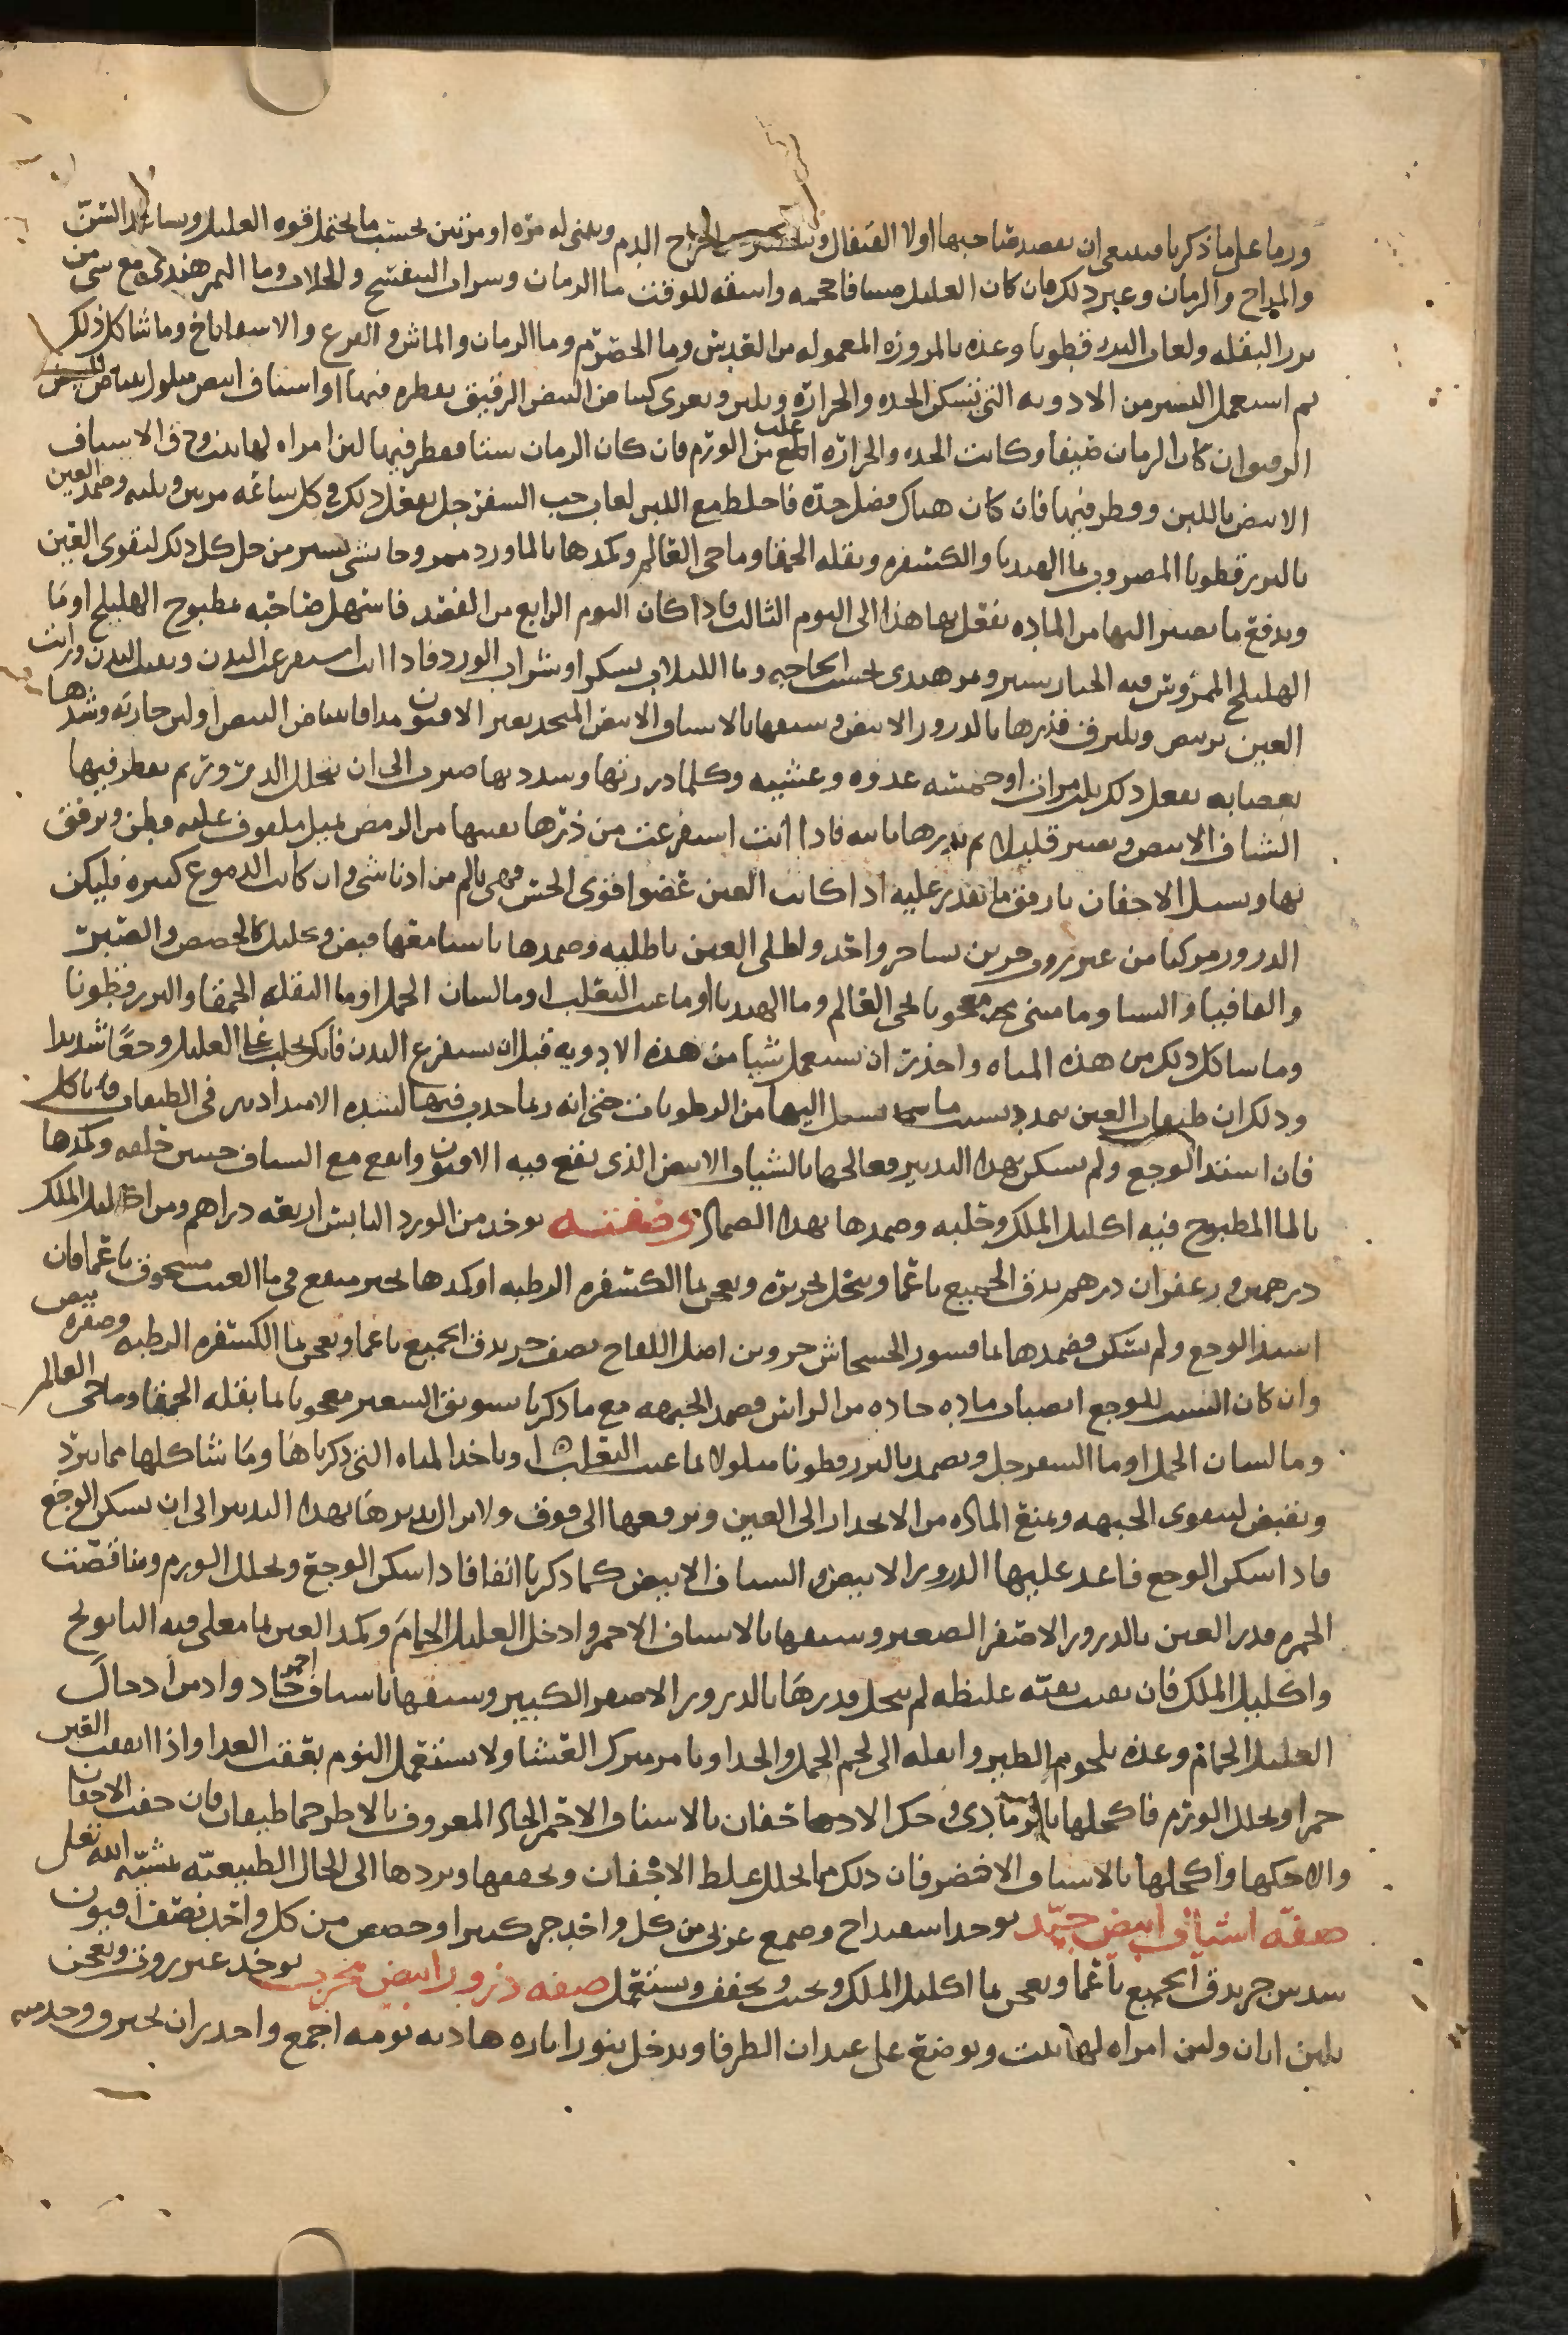 ورما على ما ذكرنا فينبغي ان يفصد صاحبها اولا القيفال و اخراج الدم ويثنى له مره او مرتين بحسب ما يحتمل قوه العليل وساعد السن
والمزاج والزمان وغير ذلك فان كان العليل صبيا فاحجمه واسقه للوقت ما الرمان وشراب البنفسج والجلاب وما التمر هندي مع شي من
بزر البقله ولعاب البزر قطونا وغذه بالمزوره المعموله من العدس وما الحصرم وما الرمان والماش والقرع والاسفاناخ وما شاكل ذلك
ثم استعمل اليسير من الادويه التي تسكن الحده والحراره ويلين ويغري كبياض البيض الرقيق يقطره فيها او اشياف ابيض مبلول ببياض البيض
الرقيق وان كان الزمان صيفا وكانت الحده والحراره اغلب من الورم فان كان الزمان شتا فقطر فيها لبن امراه لها بنت وذق الاشياف
الابيض باللبن وقطر فيها فان كان هناك فضل حده فاخلط مع اللبن لعاب حب السفرجل يفعل ذلك في كل ساعه مرتين وثلثه وضمد العين
بالبزر قطونا المضروب بما الهندبا والكسفره وبقله الحمقا وما حي العالم وكمدها بالماورد ممزوجا بشي يسير من خل كل ذلك لتقوى العين
ويدفع ما يصير اليها من الماده تفعل بها هذا الى اليوم الثالث فاذا كان اليوم الرابع من الفصد فاسهل صاحبه بمطبوخ الهليلج او بما
الهليلج الممروس فيه الخيار شنبر وتمر هندي بحسب الحاجه وما اللبلاب بسكر او شراب الورد فاذا انت استفرغت البدن ونقيت البدن ورايت
العين ترمص وتلتزق فذرها بالذرور الابيض وشيفها بالاشياف الابيض المتخذ بغير الافيون مدافا ببياض البيض او لبن جاريه وشدها
بعصابه تفعل ذلك ثلث مرات او خمسه غدوه وعشيه وكلما ذررتها وشددتها صبرت الى ان يتحلل الذرور ثم يقطر فيها
الشياف الابيض وتصبر قليلا ثم تذرها ثانيه فاذا انت استفرغت من ذرها نقيتها من الرمص بميل ملفوف عليه قطن وترفق
بها وتشيل الاجفان بارفق ما تقدر عليه اذ كانت العين عضوا قوي الحس فهي تالم من ادنا شي وان كانت الدموع كثيره فليكن
الذرور مركبا من عنزروت جزين نشا جزو واحد ولطلي العين باطليه وضمدها باشيا معها قبض وتحليل كالحضض والصبر
والقاقيا والنشا وماميثي معجونا بحي العالم وما الهندبا او ما عنب الثعلب او ما لسان الحمل او ما البقله الحمقا والبزر قطونا
وما شاكل ذلك من هذه المياه واحذر ان تستعمل شيا من هذه الادويه قبل ان تستفرغ البدن فانك تجلب على العليل وجعا شديدا
وذلك ان طبقات العين تمدد بسبب ما يسيل اليها من الرطوبات حتى انه ربما حدث فيها لشده الامتداد بثر في الطبقات وتاكل
فان اشتد الوجع ولم يسكن بهذا التدبير فعالجها بالشياف الابيض الذي يقع فيه الافيون واتبع مع الشياف حسن خلقه وكمدها
بالما المطبوخ فيه اكليل الملك وحلبه وضمدها بهذا الضماد وصفته يوخذ من الورد اليابس اربعه دراهم ومن اكليل الملك
درهمين وزعفران درهم يدق الجميع ناعما وينخل بحريره ويعجن بما الكسفره الرطبه او كمدها بخبز منقع في ما العنب مسحوق ناعما فان
اشتد الوجع ولم يسكن فضمدها بما قشور الخشخاش جزو من اصل اللفاح نصف جز يدق الجميع ناعما ويعجن بما الكسفره الرطبه وصفره بيض
وان كان السبب للوجع انصباب ماده حاده من الراس فضمد الجبهه مع ما ذكرنا بسويق الشعير معجونا بما بقله الحمقا وما حي العالم
وما لسان الحمل او ما السفرجل ويضمد بالبزر قطونا مبلولا بما عنب الثعلب وباحد المياه التي ذكرناها وما شاكلها مما يبرد
ويقبض لتتقوى الجبهه وتمنع الماده من الانحدار الى العين وترفعها الى فوق ولا تزال تدبرها بهذا التدبير الى ان يسكن الوجع
فاذا سكن الوجع فاعد عليها الذرور الابيض والشياف الابيض كما ذكرنا انفا فاذا سكن الوجع وتحلل الورم وتناقصت
الحمره فذر العين بالذرور الاصفر الصغير وشيفها بالاشياف الاحمر وادخل العليل الحمام وكمد العين بما مغلي فيه البابونج
واكليل الملك فان بقيت بقيه غليظه لم تنحل فذرها بالذرور الاصفر الكبير وشيفها باشياف احمر حاد وادمن ادخال
العليل الحمام وغذه بلحوم الطير وانقله الى لحم الحمل والجدا وتامر بترك العشا ولا يستعمل النوم بعقب الغدا واذا
حمرا وتحلل الورم فاكحلها بالرمادي وحك الاجفان بالاشياف الاحمر الحاد المعروف بالاطرحماطيقان فان خفت الاجفان
والا حكها واكحلها بالاشياف الاخضر فان ذلك مما يحلل غلظ الاجفان ويجففها ويردها الى الحال الطبيعيه بمشيه الله تعلى
صفه اشياف ابيض جيد يوخذ اسفيداج وصمغ عربي من كل واحد جز كثيرا وحضض من كل واحد نصف افيون
سدس جز يدق الجميع ناعما ويعجن بما اكليل الملك ويحبب ويجفف ويستعمل صفه ذرور ابيض مجرب يوخذ عنزروت ويعجن
بلبن اتان ولبن امراه لها بنت ويوضع على عيدان الطرفا ويدخل تنورا ناره هاديه يومه اجمع واحذر ان يحترق وخذ منه